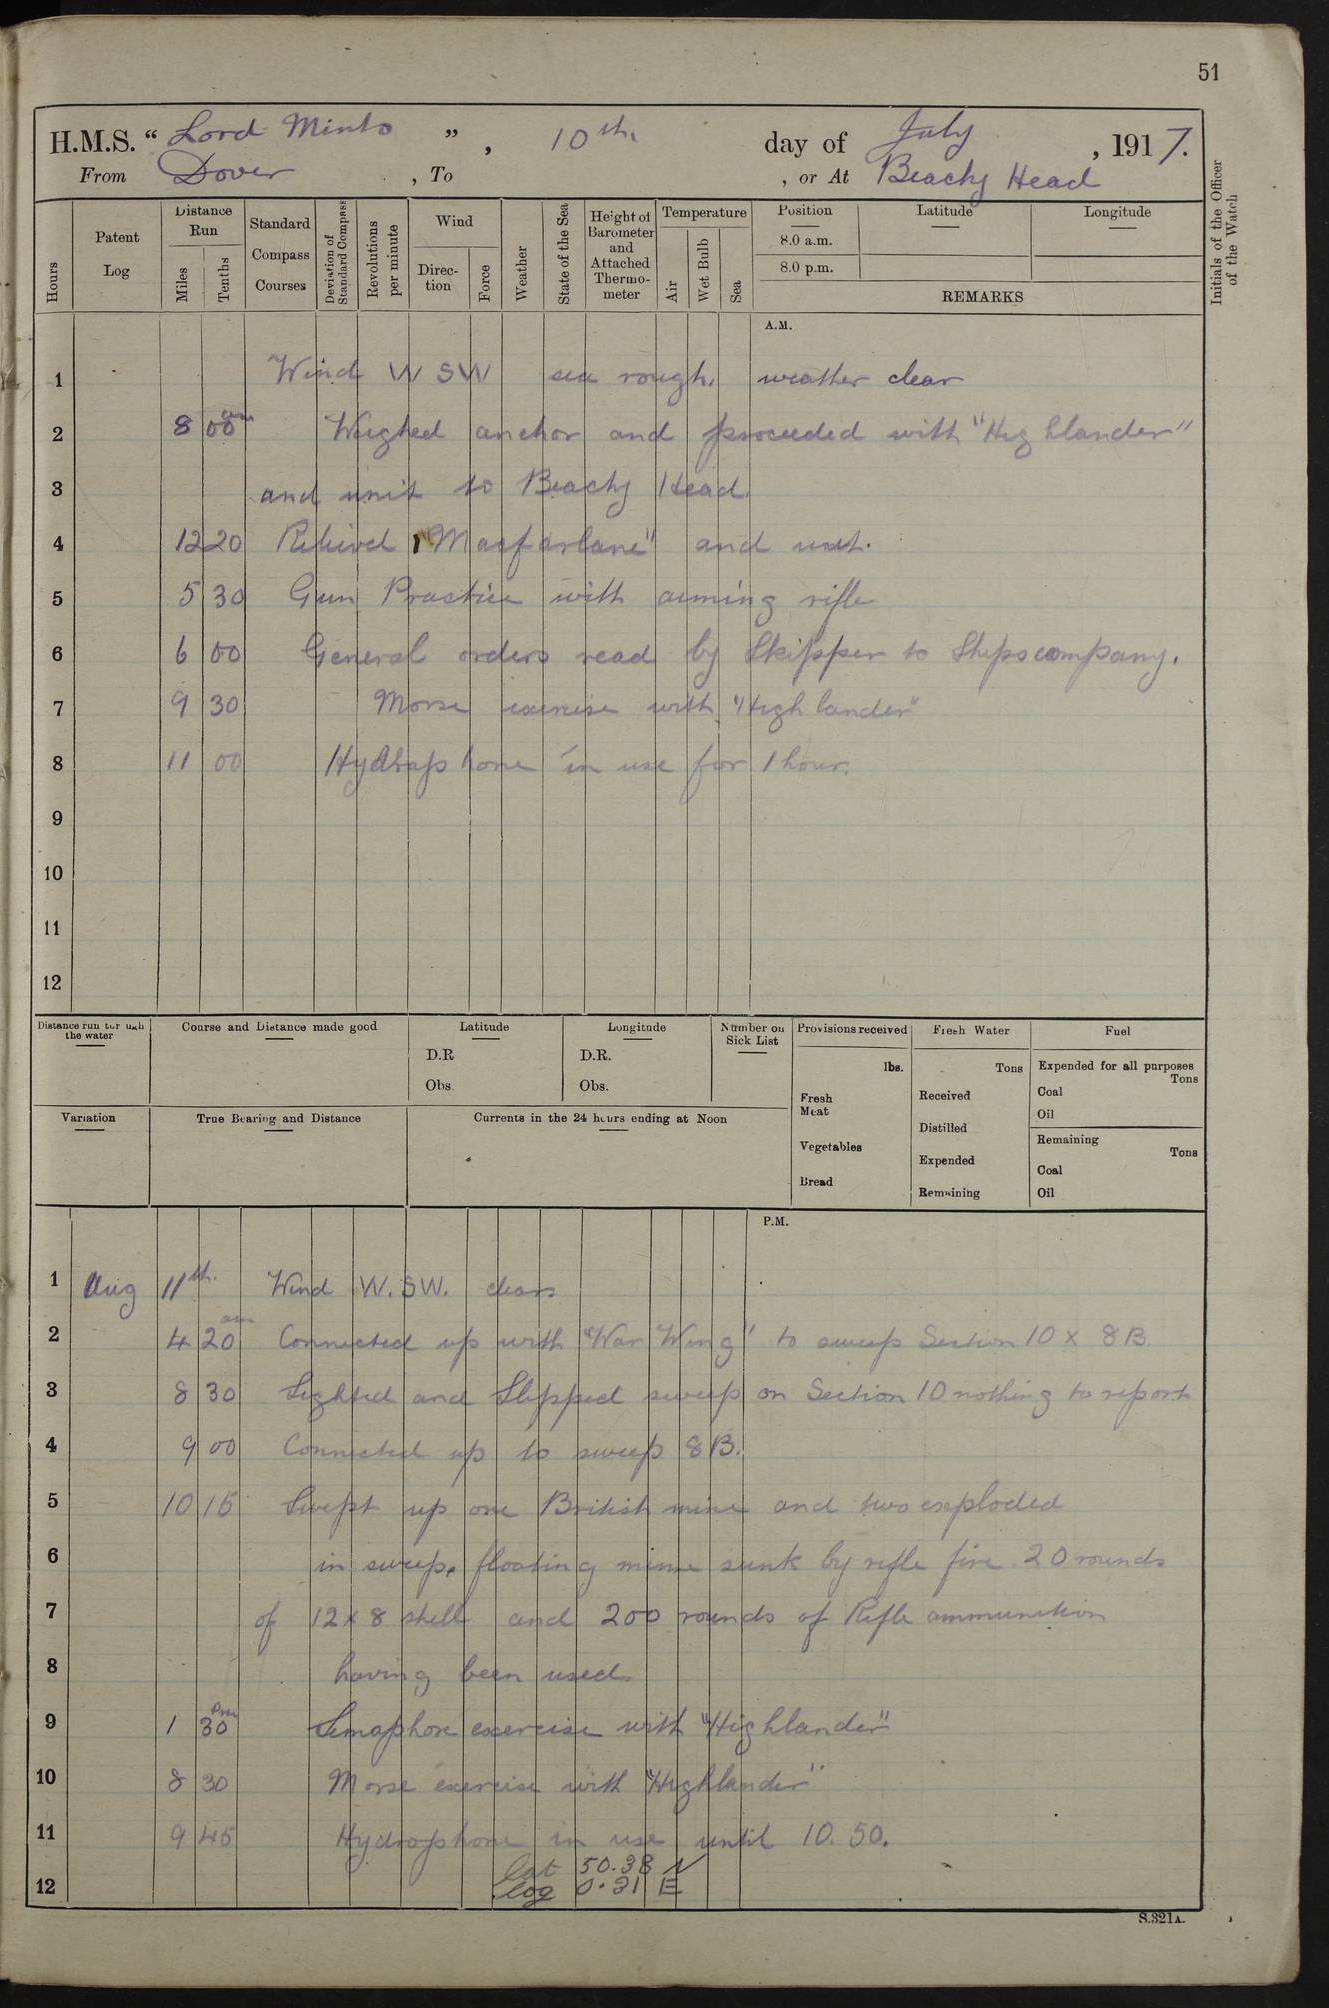 51
H.M.S. “ Lord Minto ” , 10th. day of July , 1917.
From Dover , To , or At Beachy Head
Initials of the Officer of the Watch
Hours
Patent Log
Distance Run
Miles
Tenths
Standard Compass Courses
Deviation of Standard Compass
Revolutions per minute
Wind
Direc-tion
Force
Weather
State of the Sea
Height of Barometer and Attached Thermo-meter
Temperature
Air
Wet Bulb
Sea
Position
8.0 a.m.
8.0 p.m.
Latitude
Longitude
REMARKS
A.M.
1 Wind W SW sea rough, weather clear
2 8 00 am Weighed anchor and proceeded with "Highlander"
3 and unit to Beachy Head.
4 12 20 Relievd "Macfarlane" and unit.
5 5 30 Gun Practice with aiming rifle
6 6 00 General orders read by Skipper to Shipscompany.
7 9 30 Morse exercise with "Highlander"
8 11 00 Hydraphone in use for 1 hour.
9
10
11
12
Distance run through the water
Course and Distance made good
Latitude
D.R
Obs.
Longitude
D.R.
Obs.
Number on Sick List
Provisions received
lbs.
Fresh Meat
Vegetables
Bread
Fresh Water
Tons
Received
Distilled
Expended
Remaining
Fuel
Expended for all purposes
Tons
Coal
Oil
Remaining
Tons
Coal
Oil
Variation
True Bearing and Distance
Currents in the 24 hours ending at Noon
P.M.
1 Aug 11th. Wind W.SW. clear
2 4 20 am Connected up with "War Wing" to sweep Section 10 x 8B.
3 8 30 Sighted and Slipped sweep on Section 10 nothing to report
4 9 00 Connected up to sweep 8B.
5 10 15 Swept up one British mine and two exploded
6 in sweep. floating mine sunk by rifle fire 20 rounds
7 of 12 x 8 shell and 200 rounds of Rifle ammunition
8 having been used.
9 1 30 Pm Semaphore exercise with "Highlander"
10 8 30 Morse exercise with "Highlander"
11 9 45 Hydrophone in use until 10. 50.
Lat 50.38 N
12 Log 0.31 E
S.321A.